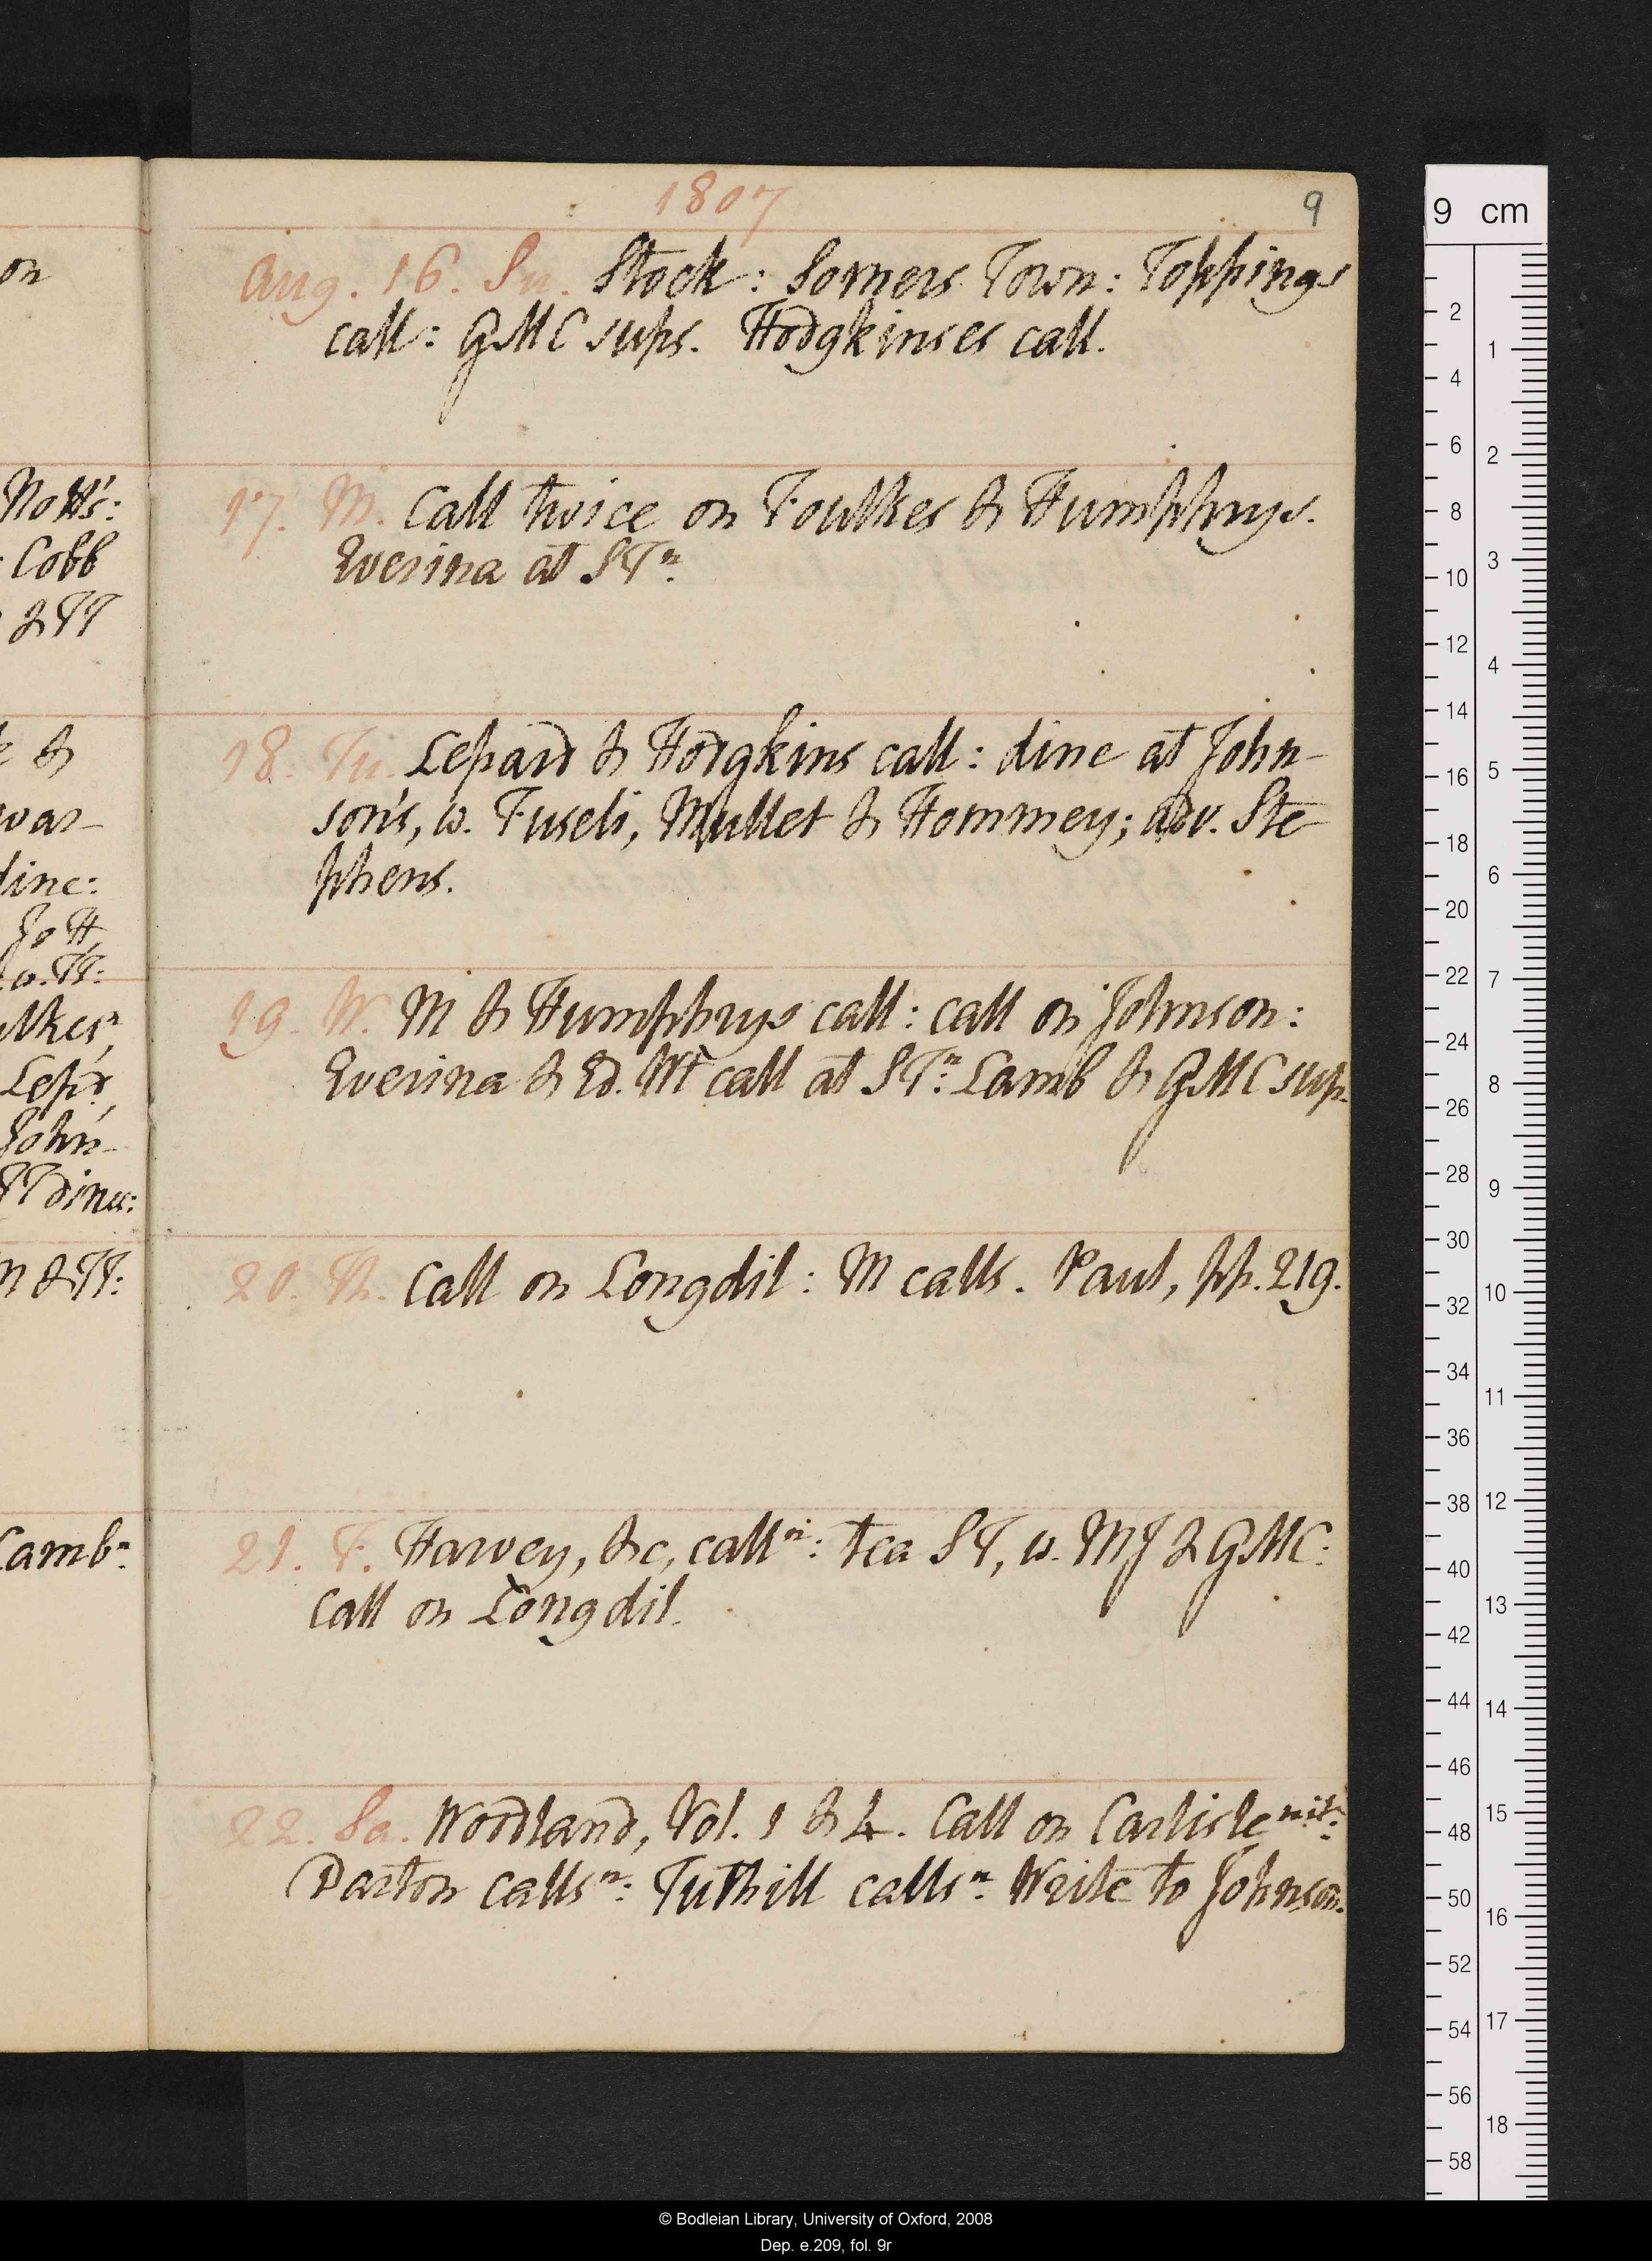 1807
9
Aug. 16. Su. Stock: Somers Town: Toppings
call: GMC sups. Hodgkinses call.
17. M. Call twice on Foulkes & Humphrys.
Everina at STn.
18. Tu. Lepard & Hodgkins call: dine at John-
son's, w. Fuseli, Mullet & Hommey; adv. Ste
phens.
19. W. M & Humphrys call: call on Johnson:
Everina & Ed. Wt call at STn: Lamb & GMC sup.
20. Th. Call on Longdil: M calls. Paul, pp. 219.
21. F. Harvey, &c, call n: tea ST, w. MJ & GMC:
call on Longdil.
22. Sa. Woodland, Vol. 1 & 4. Call on Carlisle nit:
Parton calls n: Tuthill calls n. Write to Johnson.
on
Nott's:
Cobb
& TT
&
war-
dine:
Jo H,
w. TT:
lkes n,
Lepd,
John-
TT dine:
n & TT:
Lamb n:
9 cm
2 4 6 8 10 12 14 16 18 20 22 24 26 28 30 32 34 36 38 40 42 44 46 48 50 52 54 56 58
1 2 3 4 5 6 7 8 9 10 11 12 13 14 15 16 17 18
© Bodleian Library, University of Oxford, 2008
Dep. e.209, fol. 9r